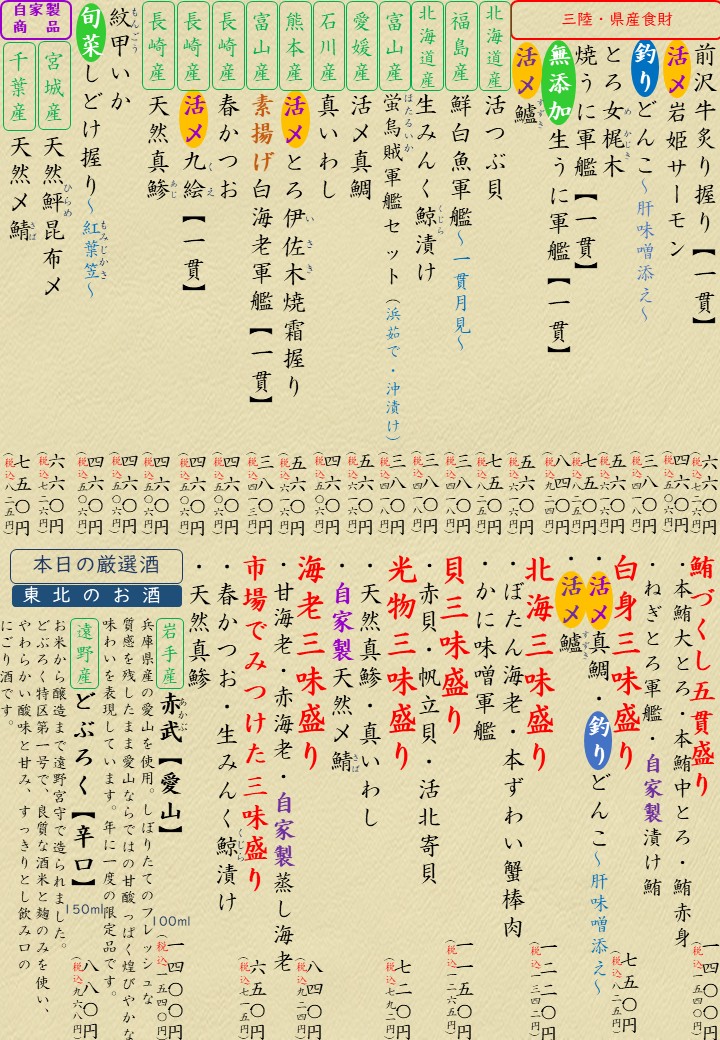 三陸・県産食財
前沢牛炙り握り【一貫】 六六〇円(税込七二六円)
活〆岩姫サーモン 四六〇円(税込五〇六円)
釣りどんこ～肝味噌添え～ 三八〇円(税込四一八円)
とろ女梶木 五六〇円(税込六一六円)
焼うに軍艦【一貫】 七五〇円(税込八二五円)
無添加生うに軍艦【一貫】 八四〇円(税込九二四円)
活〆鱸 五六〇円(税込六一六円)
北海道産 活つぶ貝 七五〇円(税込八二五円)
福島産 鮮白魚軍艦～一貫月見～ 三八〇円(税込四一八円)
北海道産 生みんく鯨漬け 三八〇円(税込四一八円)
富山産 蛍烏賊軍艦セット(浜茹で・沖漬け) 三八〇円(税込四一八円)
愛媛産 活〆真鯛 五六〇円(税込六一六円)
石川産 真いわし 四六〇円(税込五〇六円)
熊本産 活〆とろ伊佐木焼霜握り 五六〇円(税込六一六円)
富山産 素揚げ白海老軍艦【一貫】 三八〇円(税込四一八円)
長崎産 春かつお 四六〇円(税込五〇六円)
長崎産 活〆九絵【一貫】 四六〇円(税込五〇六円)
長崎産 天然真鯵 四六〇円(税込五〇六円)
紋甲いか 四六〇円(税込五〇六円)
旬菜しどけ握り～紅葉笠～ 四六〇円(税込五〇六円)
自家製商品
宮城産 天然鮃昆布〆 六六〇円(税込七二六円)
千葉産 天然〆鯖 七五〇円(税込八二五円)
鮪づくし五貫盛り 一四〇〇円(税込一五四〇円)
・本鮪大とろ・本鮪中とろ・鮪赤身
・ねぎとろ軍艦・自家製漬け鮪
白身三味盛り 七五〇円(税込八二五円)
・活〆真鯛・釣りどんこ～肝味噌添え～
・活〆鱸
北海三味盛り 一二二〇円(税込一三四二円)
・ぼたん海老・本ずわい蟹棒肉
・かに味噌軍艦
貝三味盛り 一一五〇円(税込一二六五円)
・赤貝・帆立貝・活北寄貝
光物三味盛り 七二〇円(税込七九二円)
・天然真鯵・真いわし
・自家製天然〆鯖
海老三味盛り 八四〇円(税込九二四円)
・甘海老・赤海老・自家製蒸し海老
市場でみつけた三味盛り 六五〇円(税込七一五円)
・春かつお・生みんく鯨漬け
・天然真鯵
本日の厳選酒
東北のお酒
岩手産 赤武【愛山】 100ml 一四〇〇円(税込一五四〇円)
兵庫県産の愛山を使用。しぼりたてのフレッシュな
質感を残したまま愛山ならではの甘酸っぱく煌びやかな
味わいを表現しています。年に一度の限定品です。
遠野産 どぶろく【辛口】 150ml 八八〇円(税込九六八円)
お米から醸造まで遠野宮守で造られました。
どぶろく特区第一号で、良質な酒米と麹のみを使い、
やわらかい酸味と甘み、すっきりとし飲み口の
にごり酒です。